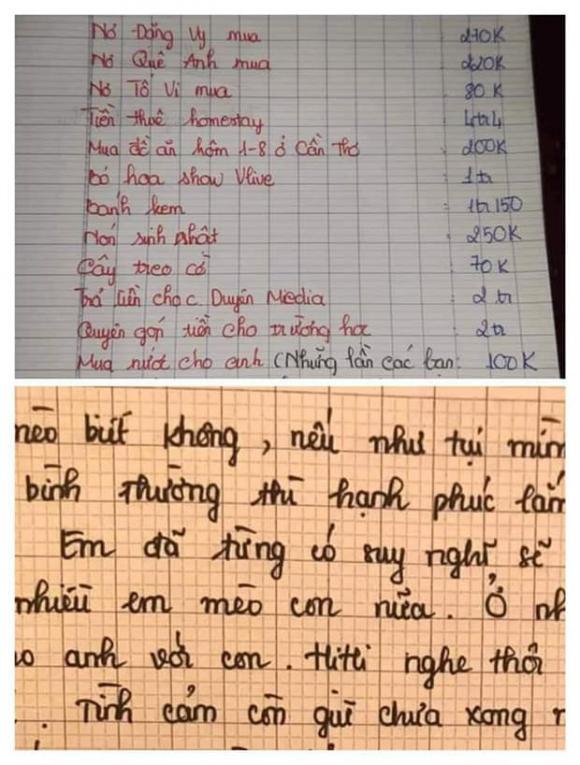 Nợ Đặng Vy mua : 270K
Nợ Quế Anh mua : 220K
Nợ Tố Vi mua : 80K
Tiền thuê homestay : 4tr4
Mua đồ ăn hôm 1-8 ở Cần Thơ : 200K
bó hoa show Vlive : 1tr
bánh kem : 1tr150
Nón sinh nhật : 250K
Cây treo cờ : 70K
Trả tiền cho c. Duyên Media : 2tr
Quyên góp tiền cho trường học : 2tr
Mua nước cho anh (Những lần các bạn : 100K
mèo biết không, nếu như tụi mìn
bình thường thì hạnh phúc lắm
Em đã từng có suy nghĩ sẽ
nhiều em mèo con nữa. Ở nh
anh với con. Hihi nghe thôi
. Tình cảm còn gửi chưa xong